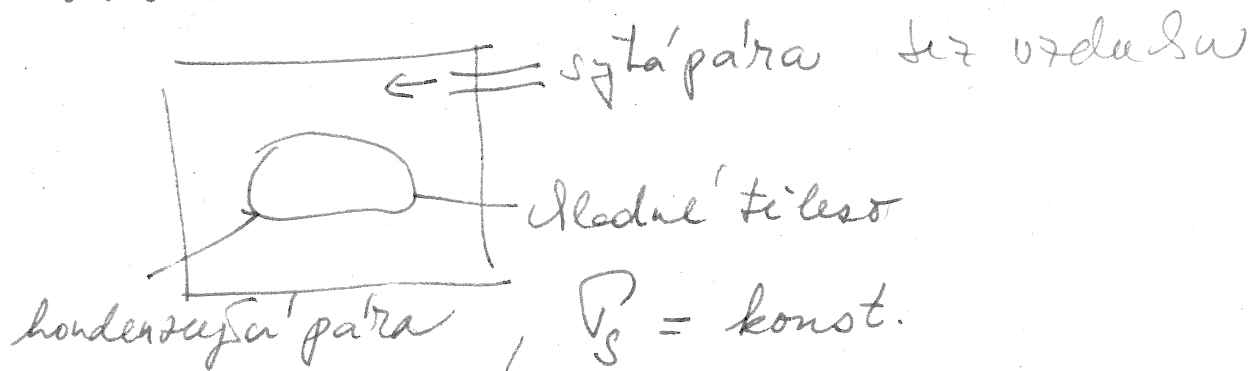 sytá pára bez vzduchu
chladné těleso
kondenzující pára, T_s = konst.